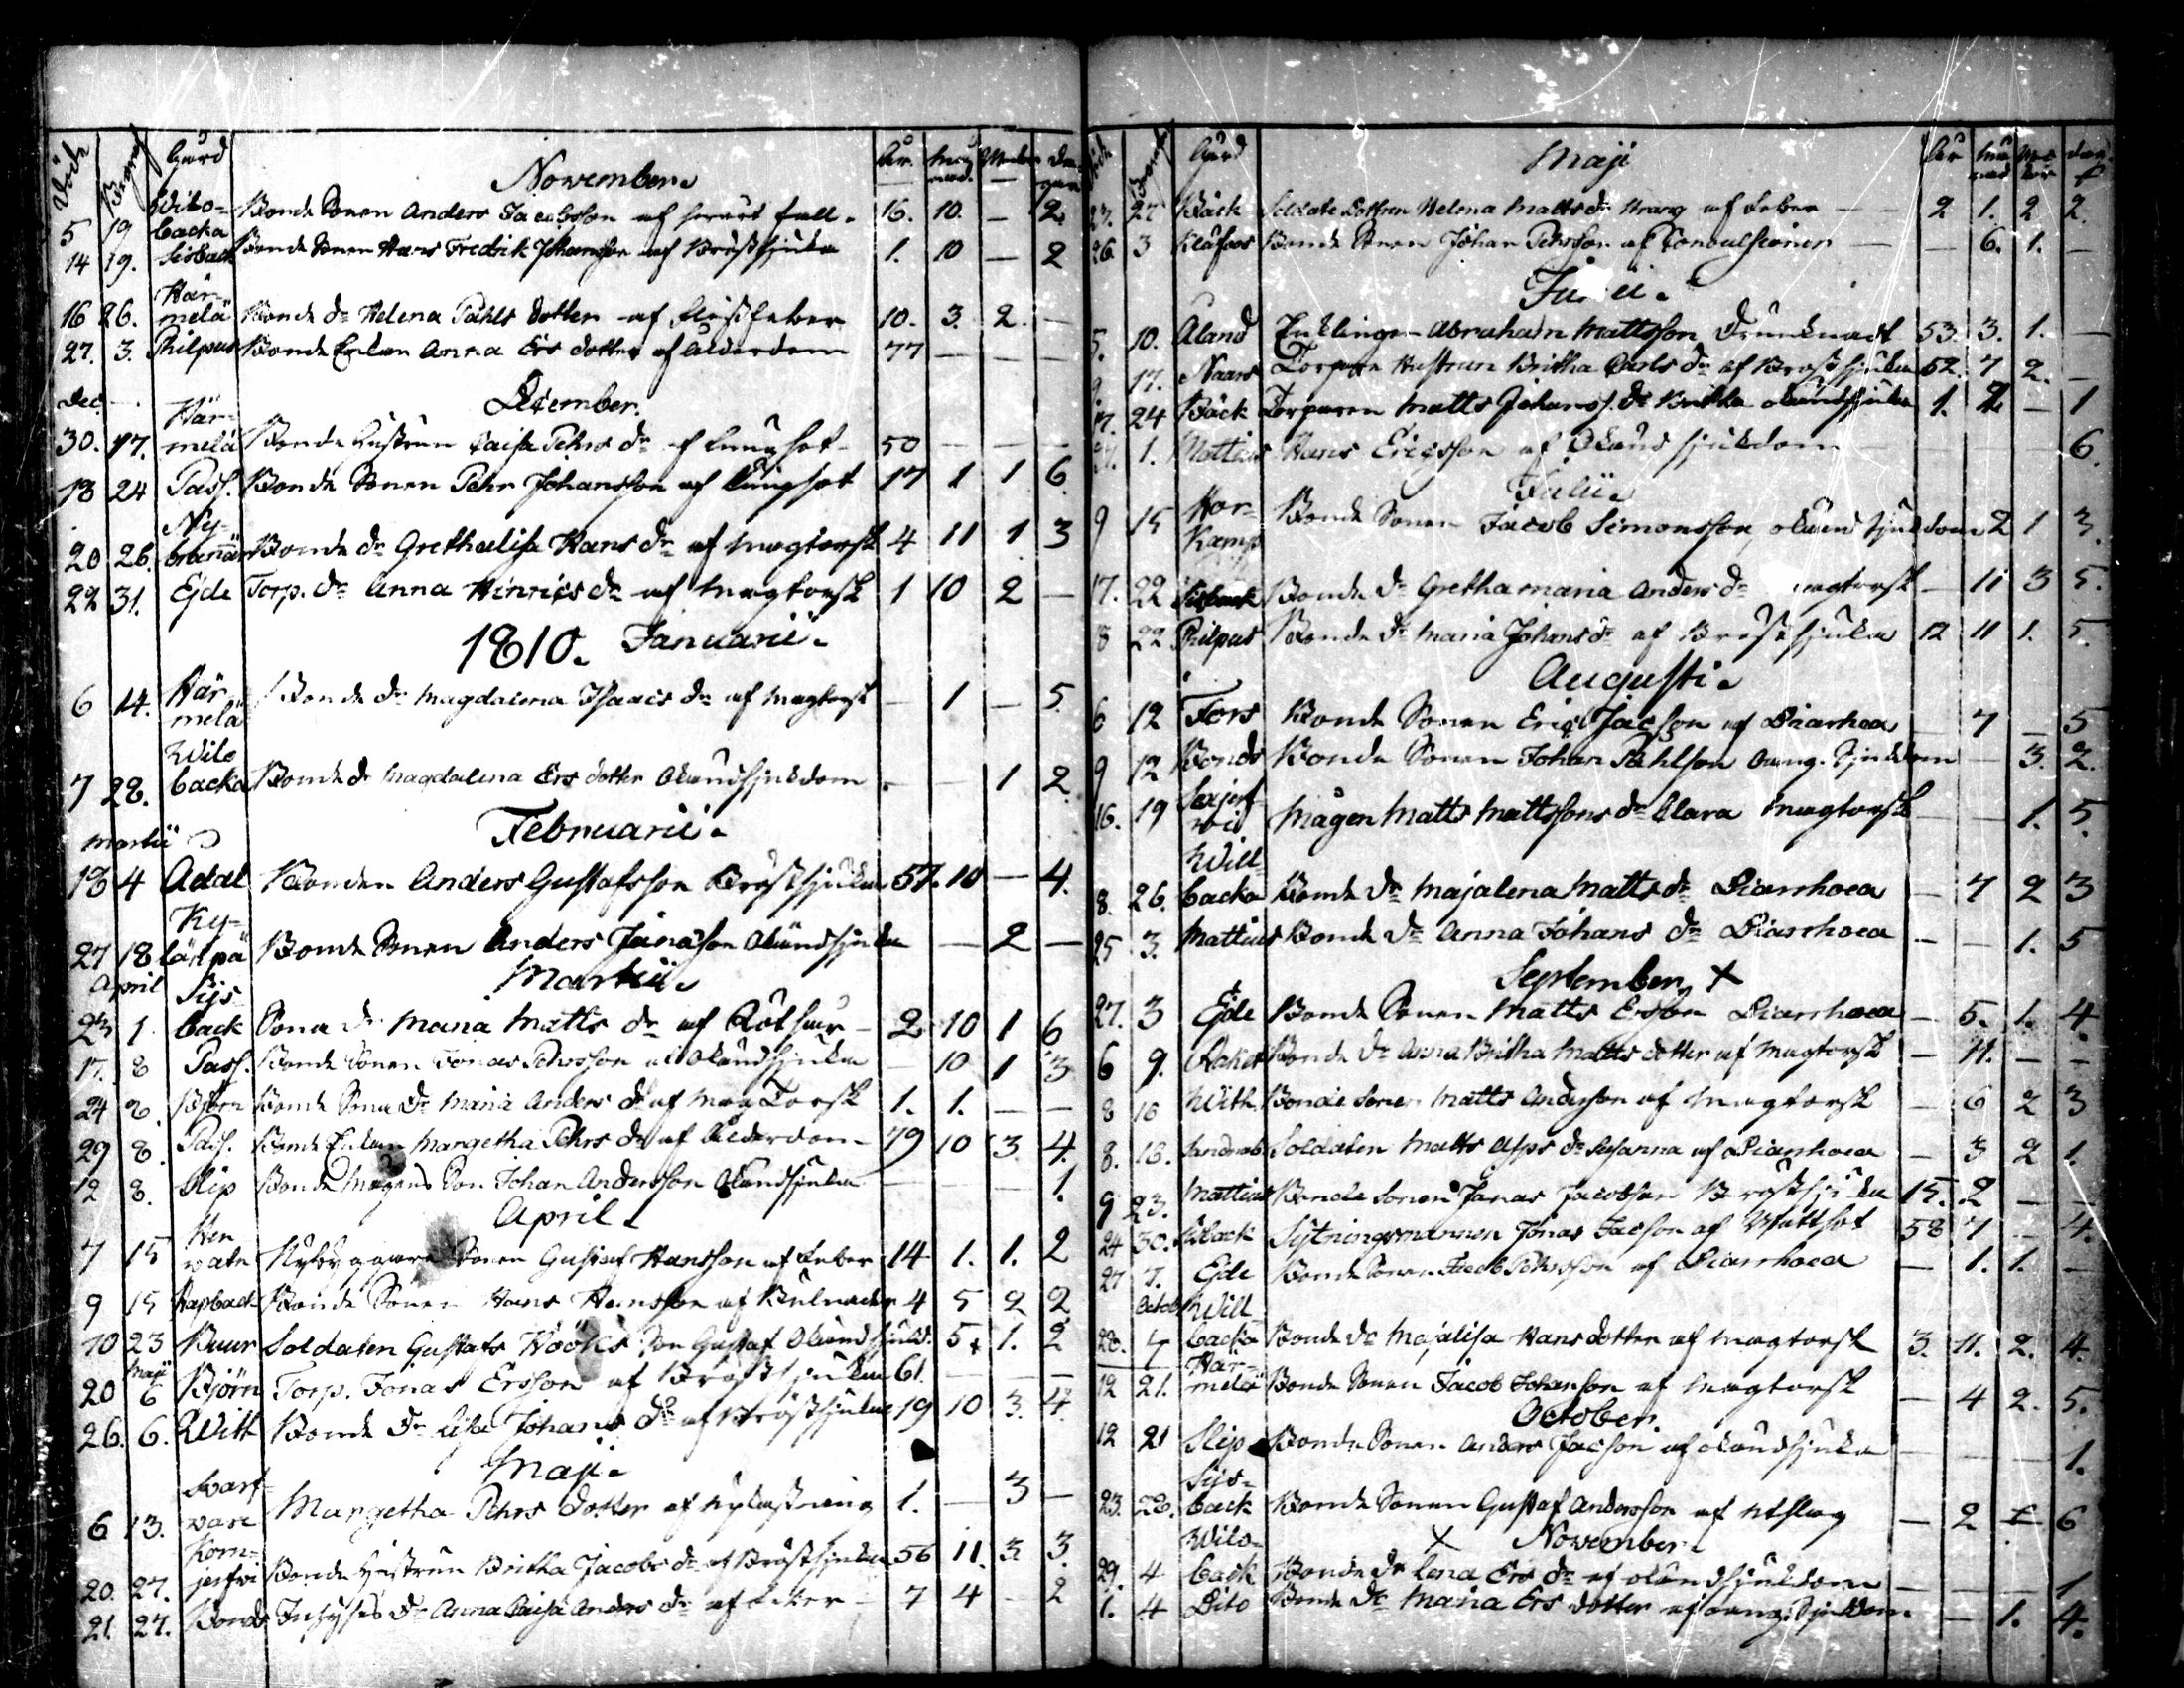 Döde Begrafne Gård År. Måna- Wekor Da-
November. nad. gar
Wito-
5 19 backa Bonde Sonen Anders Jacobsson af fall. 16. 10. — 2.
14 19. Sisback Bonde Sonen Hans Fredrik Johansson af Bröstsjuka 1. 10 — 2
Här-
16 26. melä Bonde dr Helena Påhls dotter af feber 10. 3. 2. —
27. 3. Philpus Bonde Enkan Anna Ers dotter af ålderdom 77 — — —
Dec. December.
Här-
30. 17. melä Bonde Hustrun Caisa Pehrs dr af Lungsot 50 — — —
18 24 Pass. Bonde Sonen Pehr Johansson af Lungsot 17 1 1 6.
Ny-
20 26. brännars Bonde dr Grethalisa Hans dr af magtorsk 4 11 1 3
22 31. Ejde Torp. dr Anna Hinrics dr af magtorsk 1 10 2 —
1810. Januarii.
6 14. Här- Bonde dr Magdalena Isaacs dr af magtorsk — 1 — 5.
melä
Wito
7 28. backa Bonde dr Magdalena Ers dotter okänd sjukdom — — 1 2.
Martii Februarii.
18 4 Adal Bonden Anders Gustafsson Bröstsjuka 57. 10 — 4.
Ky-
27 18 länpä Bonde Sonen Anders Janasson okändsjuka — 2 —
April Martii.
Sijs-
23 1 back Sona dr Maria Matts dr af Rötsur 2 10 1 6
17. 8 Pass. Bonde Sonen Jonas Pehrsson af okändsjuka — 10 1 3
24 8. Björn Bonde Sona dr Maria Anders dr af Mag Torsk 1. 1. — —
29 8. Pass. Bonde Enkan Margetha Pehrs dr af ålderdom 79 10 3. 4.
12 8. Slip Bonde Mågens Son Johan Andersson okändsjuka — — — 1.
April.
7 15 Nybyggare Sonen Gustaf Hansson af feber 14 1. 1. 2
9 15 Rapback Bonde Sonen Hans Hansson af 4 5 2 2
10 23 Buur Soldaten Gustafs Höök's Son Gustaf okänd sjukd. 5. 1. 2
Maji
20 6 Björn Torp. Jonas Ersson af Bröstsjuka 61. — — —
26. 6. Witt Bonde dr Lisa Johans dr af Bröstsjuka 19 10 3. 4.
Maji.
Swart-
6 13. ware Margetha Pehrs dotter af 1. — 3 —
Korn-
20. 27. jerfwi Bonde Hustrun Britha Jacobs dr af Bröstsjuka 56 11. 3. 3.
21. 27. Bonds Inhyses dr Anna Caisa Anders dr af feber 7 4 — 2
Döde Begrafne Gård Maji År Måna- We- dag-
nad kor
23. 27 Bäck Soldate Dottren Helena Matts dr af feber — 2 1. 2 2.
26 3 Klåfvos Bonde Sonen Johan Pehrsson af Convulsioner — — 6. 1. —
Junii.
5. 10. Aland Inhysingen Abraham Mattsson Drunknadt 53. 3. 1. —
9 17. Naars Torpare Hustrun Britha Carls dr af Bröstsjuka 52. 7 2. —
17. 24 Bäck Torparen Matts Johanss. dr Britha okändsjuka 1. 2. — 1
1. Mattius Hans Ericsson af Okänd sjukdom — — — 6.
Julii.
9 15 Hor- Bonde Sonen Jacob Simonsson okänd sjukdom 2 1 3.
Kamp
17. 22 Sisback Bonde dr Grethamaria Anders dr magtorsk — 11 3 5.
18 22 Philpus Bonde dr Maria Johans dr af Bröstsjuka 12 11 1. 5.
Augusti.
6 12 Fors Bonde Sonen Eric Jacsson af Diarrhoea — 7 — 5
9 12 Bonds Bonde Sonen Johan Påhlson oang. Sjukdom — — 3. 2.
16. 19 Måg en Matts Mattssons dr Clara magtorsk — — 1. 5.
Will-
8. 26. backa Bonde dr Majalena Matts dr Diarrhoea — 7 2 3
25 3. Mattius Bonde dr Anna Johans dr Diarrhoea — — 1. 5
September. x
27. 3 Ejde Bonde Sonen Matts Ersson Diarrhoea — 5. 1. 4
6 9. Bonde dr Anna Britha Matts dotter af magtorsk — 11. — —
8 16 With Bonde Sonen Matts Andersson af magtorsk — 6 2 3
8. 16. Soldaten Matts Asps dr Susanna af Diarrhoea — 3 2 1.
9 23. Mattius Bonde Sonen Janas Jacobsson Bröstsjuka 15. 2 — —
24 30. Sisback Sytningsmannen Jonas Jacsson af Wattsot 58 7 — 4.
27 7. Ejde Bonde Sonen Jacob Pehrsson af Diarrhoea — 1. 1. —
Octob. Will
28. 7 backa Bonde dr Majalisa Hans dotter af magtorsk 3. 11. 2. 4.
Här-
12 21. melä Bonde Sonen Jacob Johansson af magtorsk — 4 2. 5.
October.
12 21 Slip Bonde Sonen Anders Jacsson af okändsjuka — — — 1.
Sijs-
23. 28. back Bonde Sonen Gustaf Andersson af utslag — 2 — 6
Wito- x November.
29. 4 back Bonde dr Lena Ers dr af okändsjukdom — — — 1
1. 4 Dito Bonde dr Maria Ers dotter af oang. Sjukdom — — 1. 4.